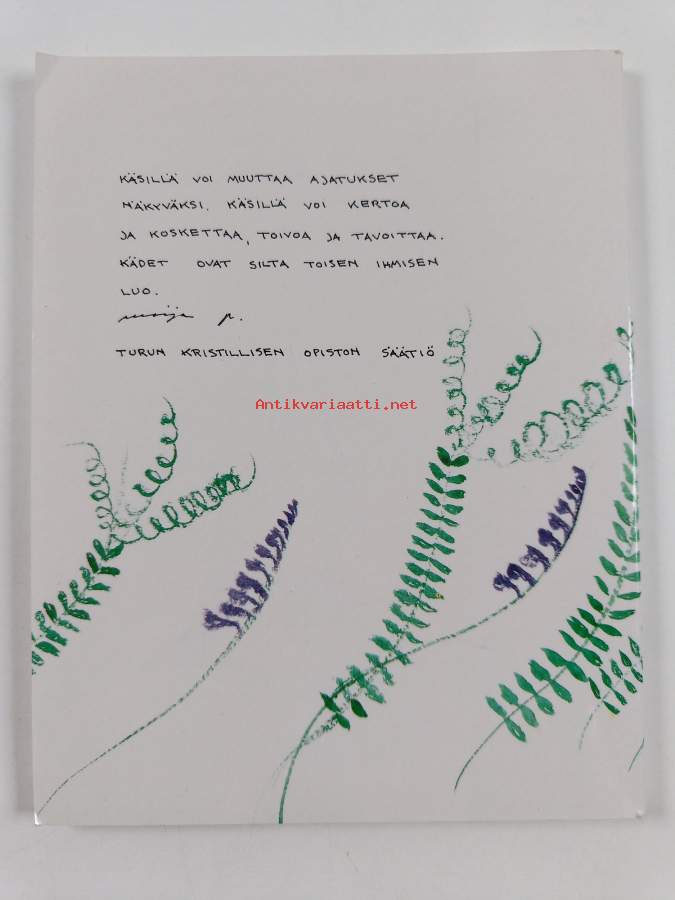 KÄSILLÄ VOI MUUTTAA AJATUKSET
NÄKYVÄKSI. KÄSILLÄ VOI KERTOA
JA KOSKETTAA, TOIVOA JA TAVOITTAA.
KÄDET OVAT SILTA TOISEN IHMISEN
LUO.
marja p.
TURUN KRISTILLISEN OPISTON SÄÄTIÖ
Antikvariaatti.net